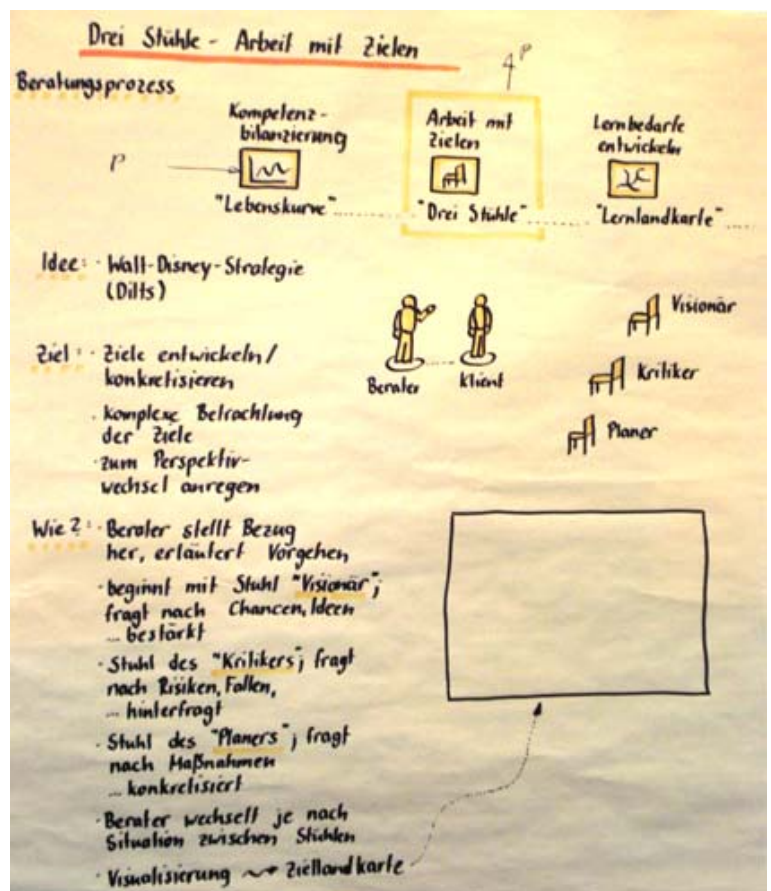 Drei Stühle - Arbeit mit Zielen
Beratungsprozess
Kompetenz-
bilanzierung
"Lebenskurve"
P
Arbeit mit
Zielen
"Drei Stühle"
P
Lernbedarfe
entwickeln
"Lernlandkarte"
Idee: · Walt-Disney-Strategie
(Dilts)
Ziel: · Ziele entwickeln/
konkretisieren
· komplexe Betrachtung
der Ziele
· zum Perspektiv-
wechsel anregen
Berater
Klient
Visionär
Kritiker
Planer
Wie?: · Berater stellt Bezug
her, erläutert Vorgehen
· beginnt mit Stuhl "Visionär";
fragt nach Chancen, Ideen
... bestärkt
· Stuhl des "Kritikers"; fragt
nach Risiken, Fallen,
... hinterfragt
· Stuhl des "Planers"; fragt
nach Maßnahmen
... konkretisiert
· Berater wechselt je nach
Situation zwischen Stühlen
· Visualisierung Ziellandkarte